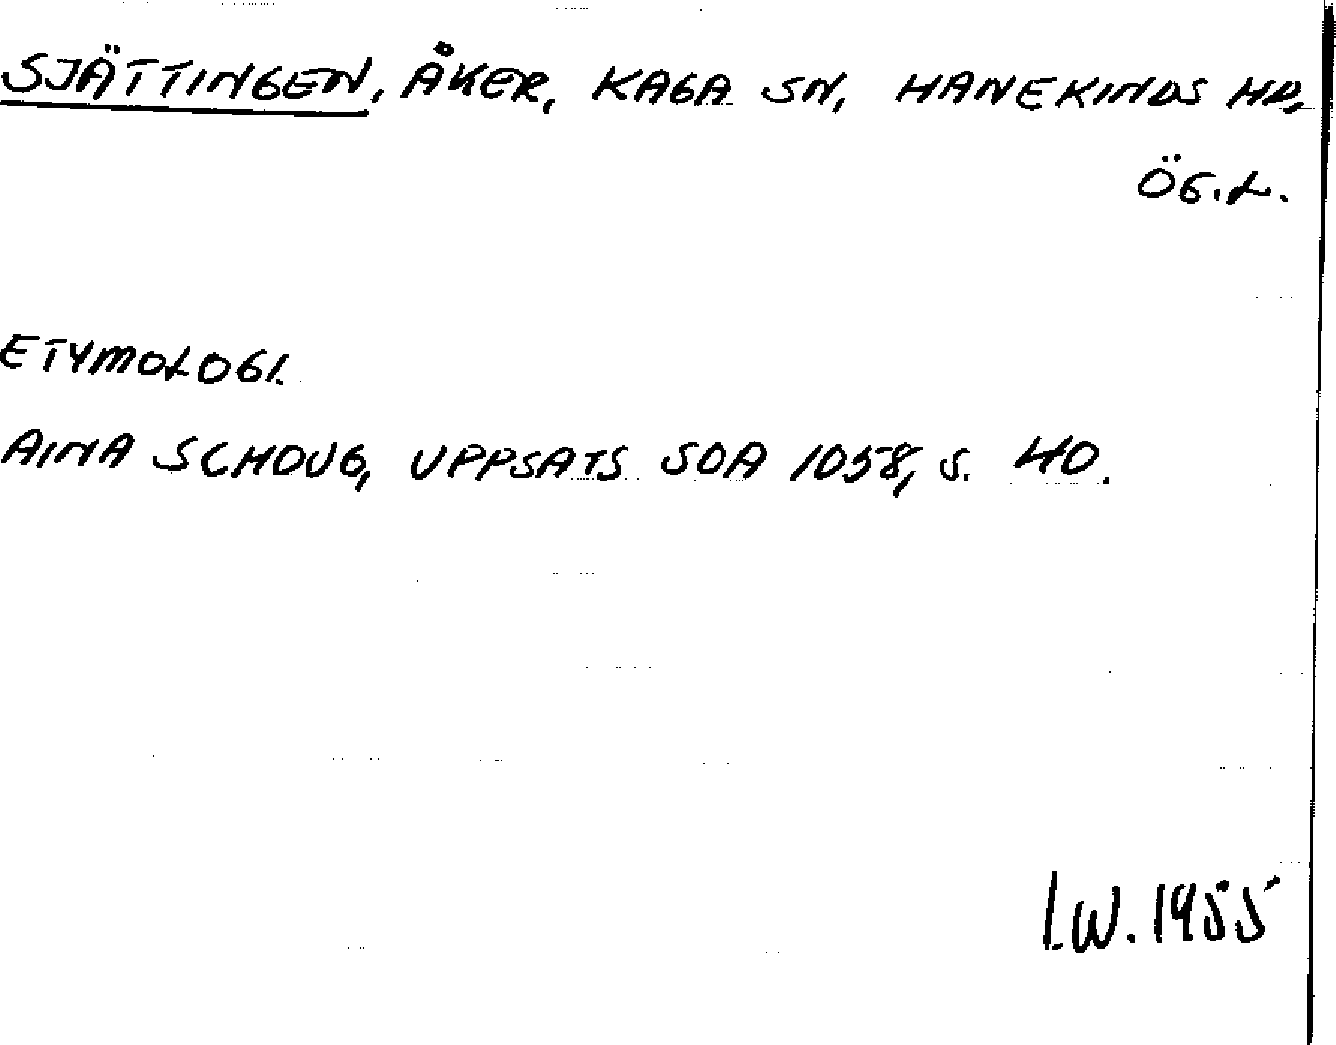 SJÄTTINGEN, ÅKER, KAGA SN, HANEKINDS HD,
ÖG.L.
ETYMOLOGI.
AINA SCHOUG, UPPSATS SOA 1058, S. 40.
I.W. 1955